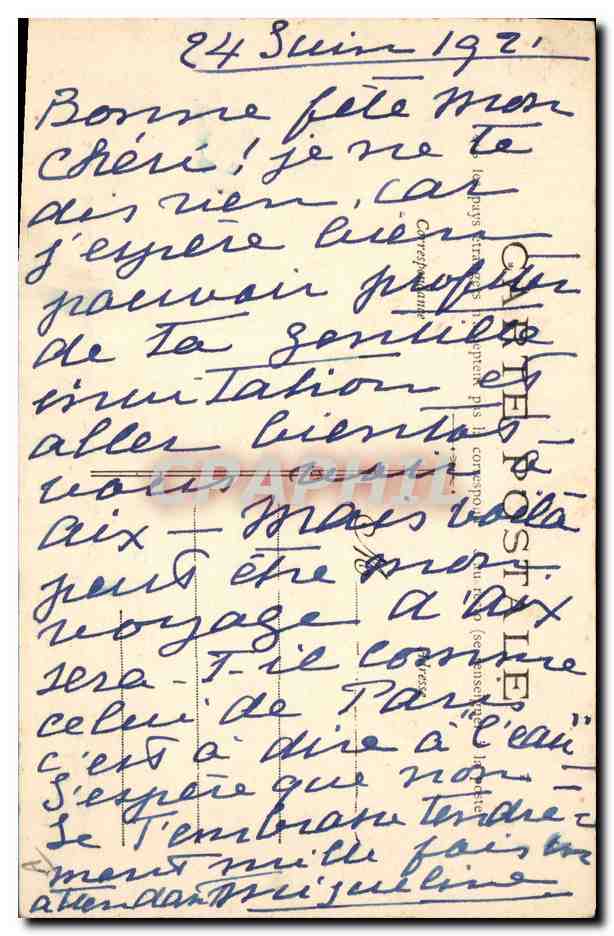 24 Juin 1921
Bonne fête mon
chéri ! je ne te
dis rien, car
j'espère bien
pouvoir profiter
de ta gentille
invitation et
aller bientôt
vous voir à
aix — Mais voilà
peut être mon
voyage d'aix
sera-t-il comme
celui de Paris
c'est à dire à "l'eau"
J'espère que non —
Je t'embrasse tendre-
ment mille fois en
attendant Migueline
CARTE POSTALE
Correspondance
Adresse
CPAPHIL